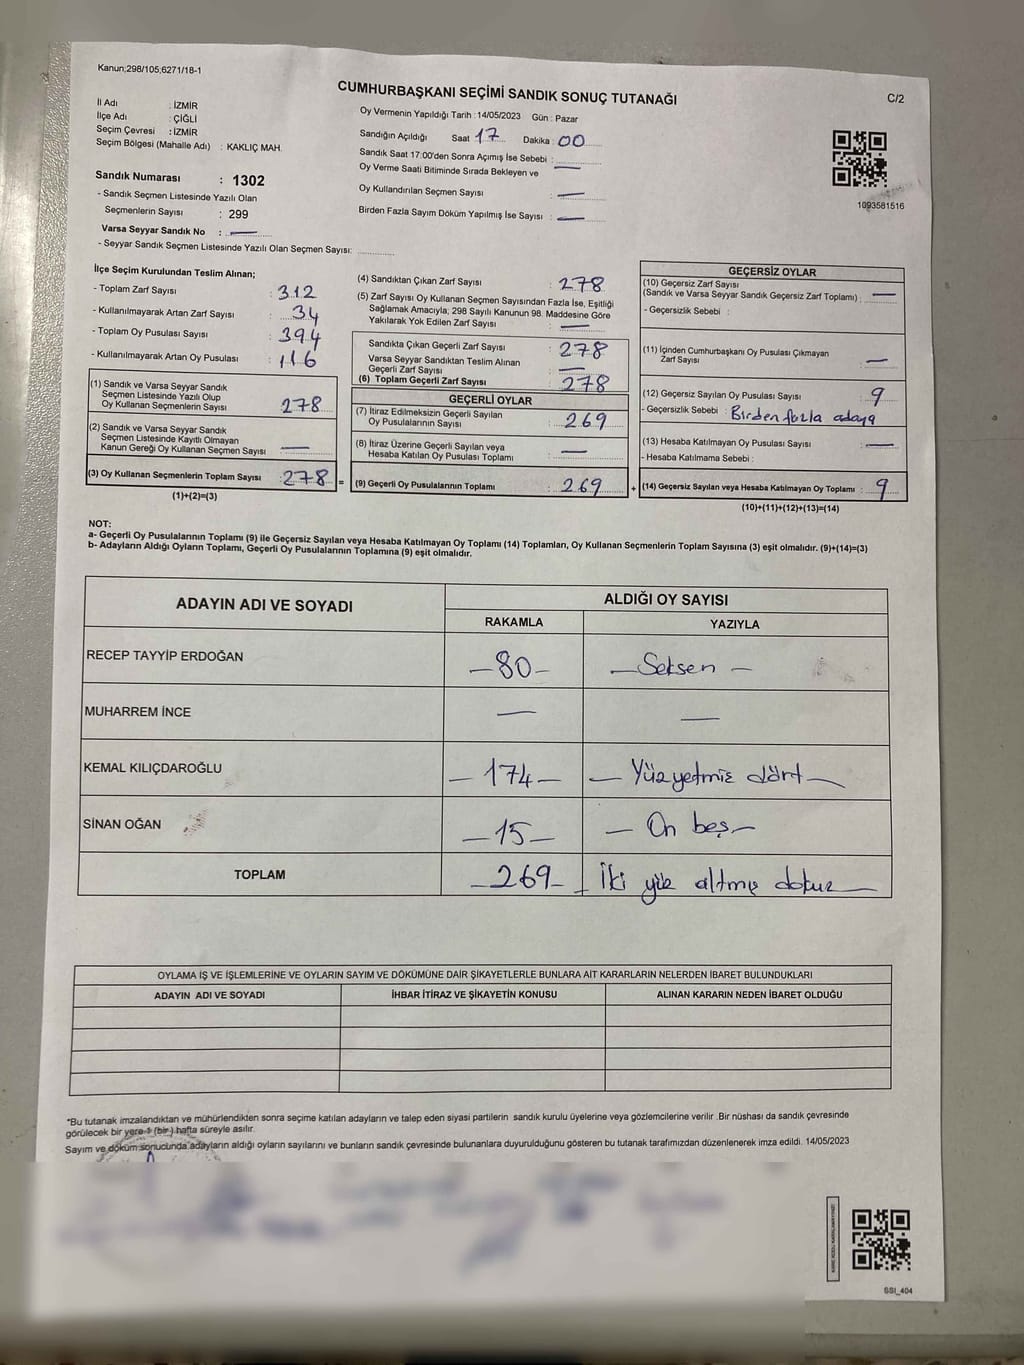 Kanun;298/105;6271/18-1
CUMHURBAŞKANI SEÇİMİ SANDIK SONUÇ TUTANAĞI
C/2
İl Adı : İZMİR
İlçe Adı : ÇİĞLİ
Seçim Çevresi : İZMİR
Seçim Bölgesi (Mahalle Adı) : KAKLIÇ MAH.
Sandık Numarası : 1302
- Sandık Seçmen Listesinde Yazılı Olan
Seçmenlerin Sayısı : 299
Varsa Seyyar Sandık No : —
- Seyyar Sandık Seçmen Listesinde Yazılı Olan Seçmen Sayısı:
Oy Vermenin Yapıldığı Tarih : 14/05/2023 Gün : Pazar
Sandığın Açıldığı Saat 17 Dakika : 00
Sandık Saat 17:00'den Sonra Açımış İse Sebebi :
Oy Verme Saati Bitiminde Sırada Bekleyen ve —
Oy Kullandırılan Seçmen Sayısı : —
Birden Fazla Sayım Döküm Yapılmış İse Sayısı : —
1093581516
İlçe Seçim Kurulundan Teslim Alınan;
- Toplam Zarf Sayısı : 312
- Kullanılmayarak Artan Zarf Sayısı : 34
- Toplam Oy Pusulası Sayısı : 394
- Kullanılmayarak Artan Oy Pusulası : 116
(1) Sandık ve Varsa Seyyar Sandık
Seçmen Listesinde Yazılı Olup
Oy Kullanan Seçmenlerin Sayısı : 278
(2) Sandık ve Varsa Seyyar Sandık
Seçmen Listesinde Kayıtlı Olmayan
Kanun Gereği Oy Kullanan Seçmen Sayısı : —
(3) Oy Kullanan Seçmenlerin Toplam Sayısı : 278 =
(1)+(2)=(3)
(4) Sandıktan Çıkan Zarf Sayısı : 278
(5) Zarf Sayısı Oy Kullanan Seçmen Sayısından Fazla İse, Eşitliği
Sağlamak Amacıyla; 298 Sayılı Kanunun 98. Maddesine Göre
Yakılarak Yok Edilen Zarf Sayısı : —
Sandıkta Çıkan Geçerli Zarf Sayısı : 278
Varsa Seyyar Sandıktan Teslim Alınan
Geçerli Zarf Sayısı : —
(6) Toplam Geçerli Zarf Sayısı : 278
GEÇERLİ OYLAR
(7) İtiraz Edilmeksizin Geçerli Sayılan
Oy Pusulalarının Sayısı : 269
(8) İtiraz Üzerine Geçerli Sayılan veya
Hesaba Katılan Oy Pusulası Toplamı : —
(9) Geçerli Oy Pusulalarının Toplamı : 269 +
GEÇERSİZ OYLAR
(10) Geçersiz Zarf Sayısı
(Sandık ve Varsa Seyyar Sandık Geçersiz Zarf Toplamı) : —
- Geçersizlik Sebebi :
(11) İçinden Cumhurbaşkanı Oy Pusulası Çıkmayan
Zarf Sayısı : —
(12) Geçersiz Sayılan Oy Pusulası Sayısı : 9
- Geçersizlik Sebebi : Birden fazla adaya
(13) Hesaba Katılmayan Oy Pusulası Sayısı : —
- Hesaba Katılmama Sebebi :
(14) Geçersiz Sayılan veya Hesaba Katılmayan Oy Toplamı : 9
(10)+(11)+(12)+(13)=(14)
NOT:
a- Geçerli Oy Pusulalarının Toplamı (9) ile Geçersiz Sayılan veya Hesaba Katılmayan Oy Toplamı (14) Toplamları, Oy Kullanan Seçmenlerin Toplam Sayısına (3) eşit olmalıdır. (9)+(14)=(3)
b- Adayların Aldığı Oyların Toplamı, Geçerli Oy Pusulalarının Toplamına (9) eşit olmalıdır.
ADAYIN ADI VE SOYADI ALDIĞI OY SAYISI
RAKAMLA YAZIYLA
RECEP TAYYİP ERDOĞAN —80— —Seksen—
MUHARREM İNCE — —
KEMAL KILIÇDAROĞLU —174— —Yüzyetmiş dört—
SİNAN OĞAN —15— —On beş—
TOPLAM —269— İki yüz altmış dokuz—
OYLAMA İŞ VE İŞLEMLERİNE VE OYLARIN SAYIM VE DÖKÜMÜNE DAİR ŞİKAYETLERLE BUNLARA AİT KARARLARIN NELERDEN İBARET BULUNDUKLARI
ADAYIN ADI VE SOYADI İHBAR İTİRAZ VE ŞİKAYETİN KONUSU ALINAN KARARIN NEDEN İBARET OLDUĞU
*Bu tutanak imzalandıktan ve mühürlendikten sonra seçime katılan adayların ve talep eden siyasi partilerin sandık kurulu üyelerine veya gözlemcilerine verilir .Bir nüshası da sandık çevresinde
görülecek bir yere 1 (bir ) hafta süreyle asılır.
Sayım ve döküm sonucunda adayların aldığı oyların sayılarını ve bunların sandık çevresinde bulunanlara duyurulduğunu gösteren bu tutanak tarafımızdan düzenlenerek imza edildi. 14/05/2023
SSI_404